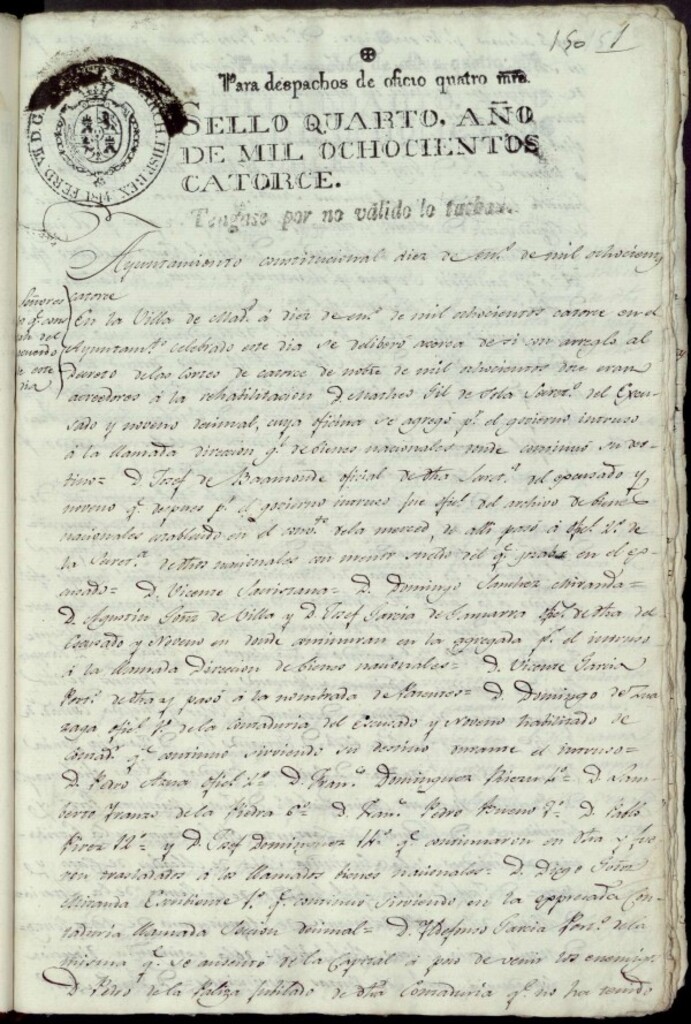 150 151
Para despachos de oficio quatro mrs.
SELLO QUARTO. AÑO
DE MIL OCHOCIENTOS
CATORCE.
HISP. REX. FERD. VII D. G.
Tengase por no válido lo
Ayuntamiento constitucional diez de en.º de mil ochocient
catorce
Señores
q.e
del
acuerdo
de este
dia
En la Villa de Mad.d á diez de en.º de mil ochocientos catorce en el
Ayuntam.to celebrado este dia se deliberó acerca de si con arreglo al
Decreto de las Cortes de catorce de nov.e de mil ochocientos doce eran
acreedores á la rehabilitacion D. Matheo Gil de Secret.º del Excu-
sado y noveno decimal, cuya oficina se agregó p.r el govierno intruso
á la llamada direccion g.l de bienes nacionales onde continuó su des-
tino= D. Josef de Baamonde oficial de dha Secret.ª del Escusado y
noveno q.e despues p.r el govierno intruso fue ofic.l del archivo de bienes
nacionales establecido en el conv.to de la merced, de alli pasó á ofi.l 2.º de
la Secret.ª de dhos nacionales con menor sueldo del q.e gozaba en el es-
cusado= D. Vicente Sacristana= D. Domingo Sanchez Miranda=
D. Agustin Goñz de Villa y D. Josef Garcia de Gamarra ofi.l de dha del
Escusado y Noveno en donde continuaron en la agregada p.r el intruso
á la llamada Direccion de bienes nacionales= D. Vicente Garcia
Port.º de dha y pasó á la nombrada de D. Domingo de Zua-
zaga ofic.l 1.º de la Contaduria del Escusado y Noveno habilitado de
Contad.r q.e continuó sirviendo su destino durante el intruso=
D. Pedro Azua ofic.l 2.º D. Fran.co Dominguez 4.º D. Lam-
berto Franzo de la Piedra 6.º D. Fran.co Pedro Bueno 7.º D. Pablo
Perez 12.º y D. Josef Dominguez 14.º q.e continuaron en dha y fue
ron trasladados á los llamados bienes nacionales= D. Diego Goñz
Miranda Escribiente 1.º q.e continuó sirviendo en la expresada Con-
taduria llamada Seccion decimal= D. Ildefonso Garcia Port.º de la
misma q.e se ausentó de la Capital á pos de venir los enemigos
D. Pedro de la Paliza jubilado de dha Contaduria q.e no ha tenido